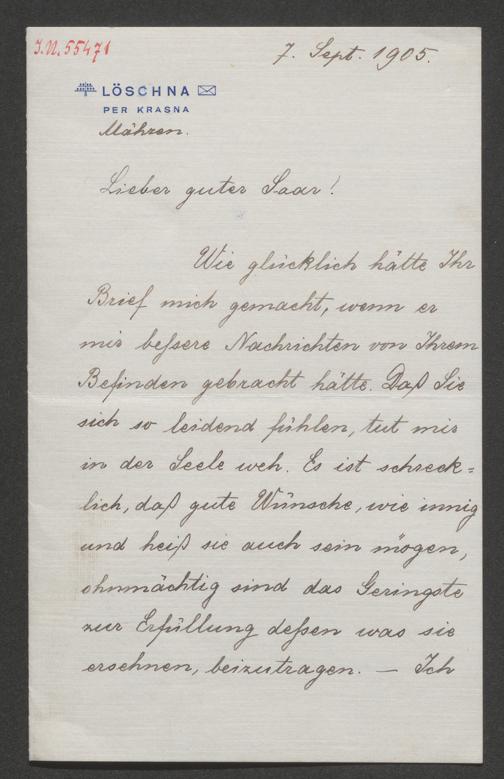 J.N. 55471
7. Sept. 1905.
LÖSCHNA
PER KRASNA
Mähren.
Lieber guter Saar!
Wie glücklich hätte Ihr
Brief mich gemacht, wenn er
mir beſsere Nachrichten von Ihrem
Befinden gebracht hätte. Daß Sie
sich so leidend fühlen, tut mir
in der Seele weh. Es ist schreck=
lich, daß gute Wünsche, wie innig
und heiß sie auch sein mögen,
ohnmächtig sind das Geringste
zur Erfüllung deſsen was sie
ersehnen, beizutragen. — Ich